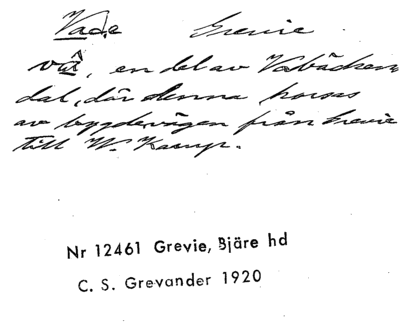 Vade Grevie
vå̂, en del av Vabäckens
dal, där denna korsas
av bygdevägen från Grevie
till W. Karup.
Nr 12461 Grevie, Bjäre hd
C. S. Grevander 1920